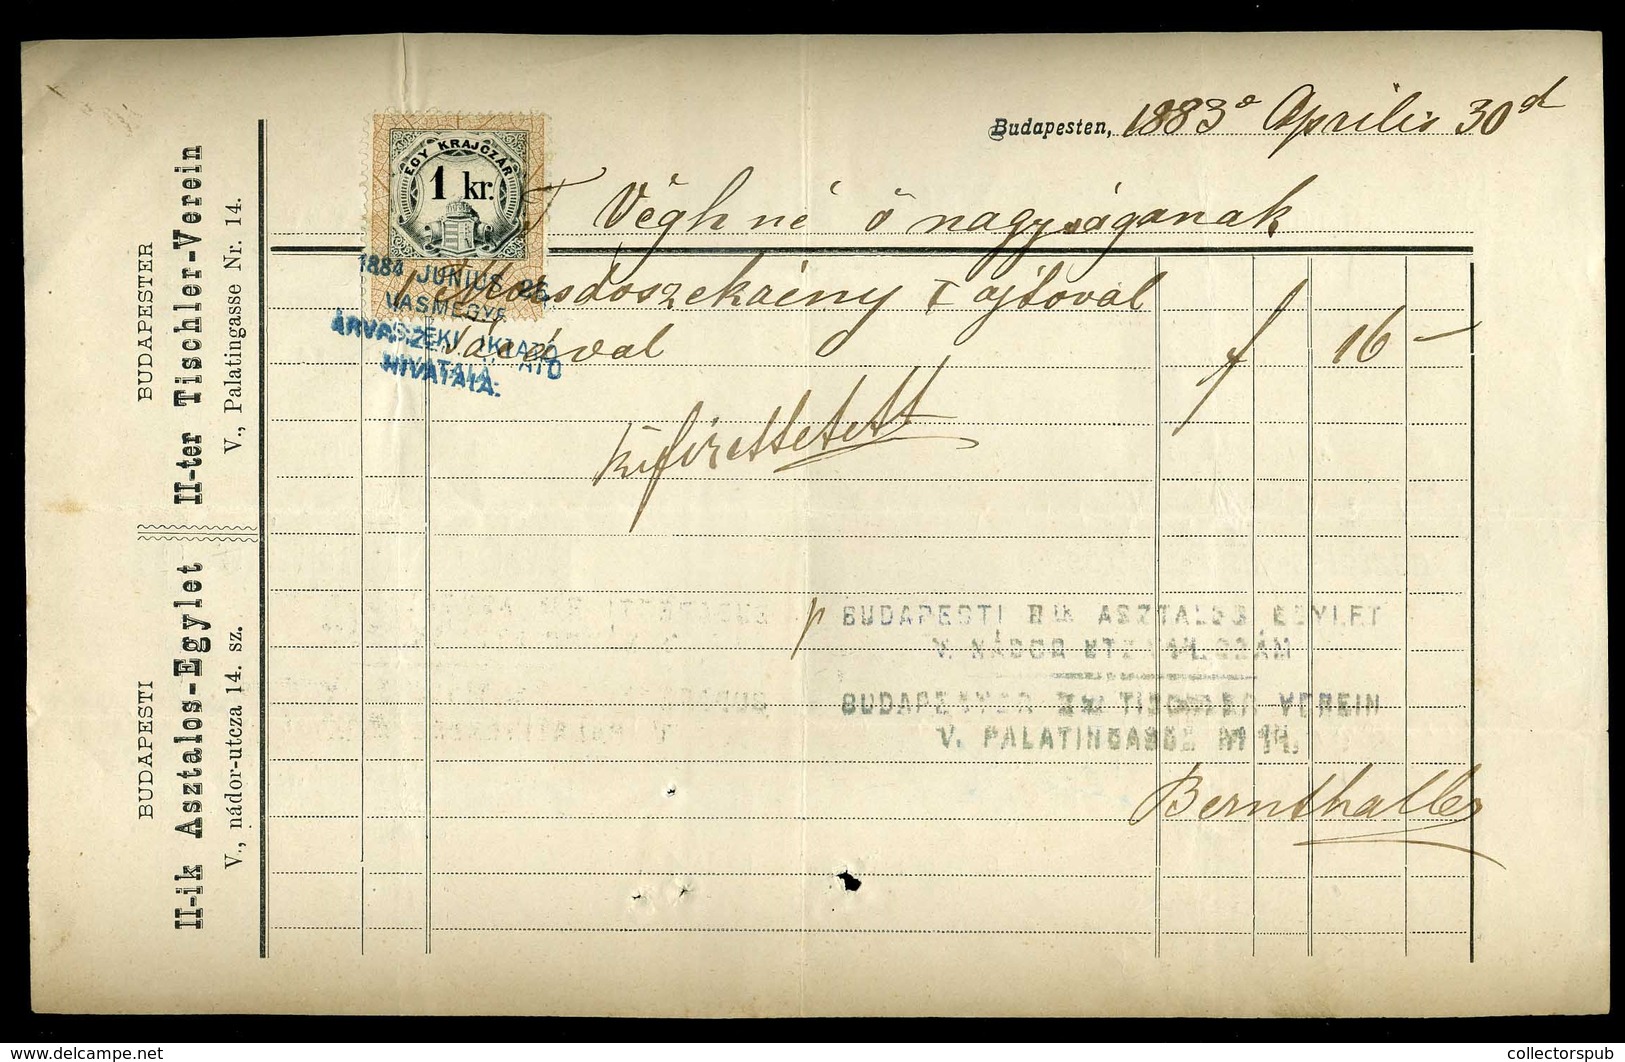 BUDAPESTER
II-ter Tischler-Verein
V., Palatingasse Nr. 14.
BUDAPESTI
II-ik Asztalos-Egylet
V., nádor-utcza 14. sz.
Budapesten, 1883º Aprilis 30d
EGY KRAJCZÁR
1 kr.
T Véghné ő nagyságának
ajtoval
f 16 –
1884 JUNIUS 25.
VASMEGYE
ÁRVASZÉKI IKTATÓ
HIVATALA.
kifizettetett
p BUDAPESTI II ik ASZTALOS EGYLET
V. NÁDOR UTZA 14. SZÁM
BUDAPESTER II ter TISCHLER VEREIN
V. PALATINGASSE Nr 14.
Bernthaller
collectorspub
http://www.delcampe.net